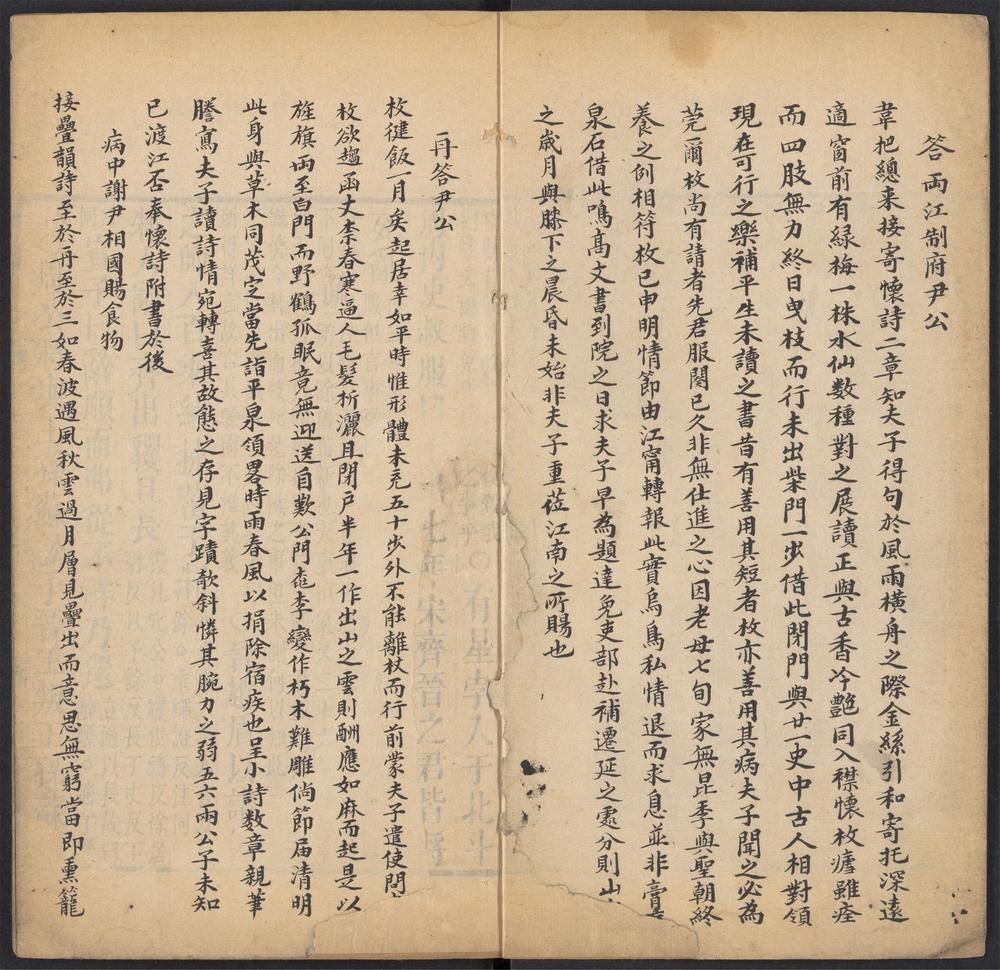 答兩江制府尹公
韋把總來接寄懷詩二章知夫子得句於風雨橫舟之際金絲引和寄托深遠
適窗前有緑梅一株水仙数種對之展讀正與古香冷艶同入襟懷枚瘧雖痊
而四肢無力終日曳枝而行未出柴門一步借此閉門與廿一史中古人相對領
現在可行之樂補平生未讀之書昔有善用其短者枚亦善用其病夫子聞之必為
莞爾枚尚有請者先君服闋已久非無仕進之心因老母七旬家無昆季與聖朝終
養之例相符枚已申明情節由江甯轉報此實烏鳥私情退而求息並非膏
泉石借此鳴高文書到院之日求夫子早為題達免吏部赴補遷延之處分則山
之嵗月與膝下之晨昏未始非夫子重莅江南之所賜也
再答尹公
枚健飯一月矣起居幸如平時惟形體未充五十步外不能離杖而行前蒙夫子遣使問
枚欲趨函丈柰春寒逼人毛髮析灑且閉戸半年一作出山之雲則酬應如麻而起是以
旌旗両至白門而野鶴孤眠竟無迎送自歎公門桃李變作朽木難雕倘節届清明
此身與草木同茂定當先詣平泉領畧時雨春風以捐除宿疾也呈小詩数章親筆
謄寫夫子讀詩情宛轉喜其故態之存見字蹟欹斜憐其腕力之弱五六兩公子未知
已渡江否奉懷詩附書於後
病中謝尹相國賜食物
接疊韻詩至於再至於三如春波遇風秋雲過月層見疊出而意思無窮當即熏籠